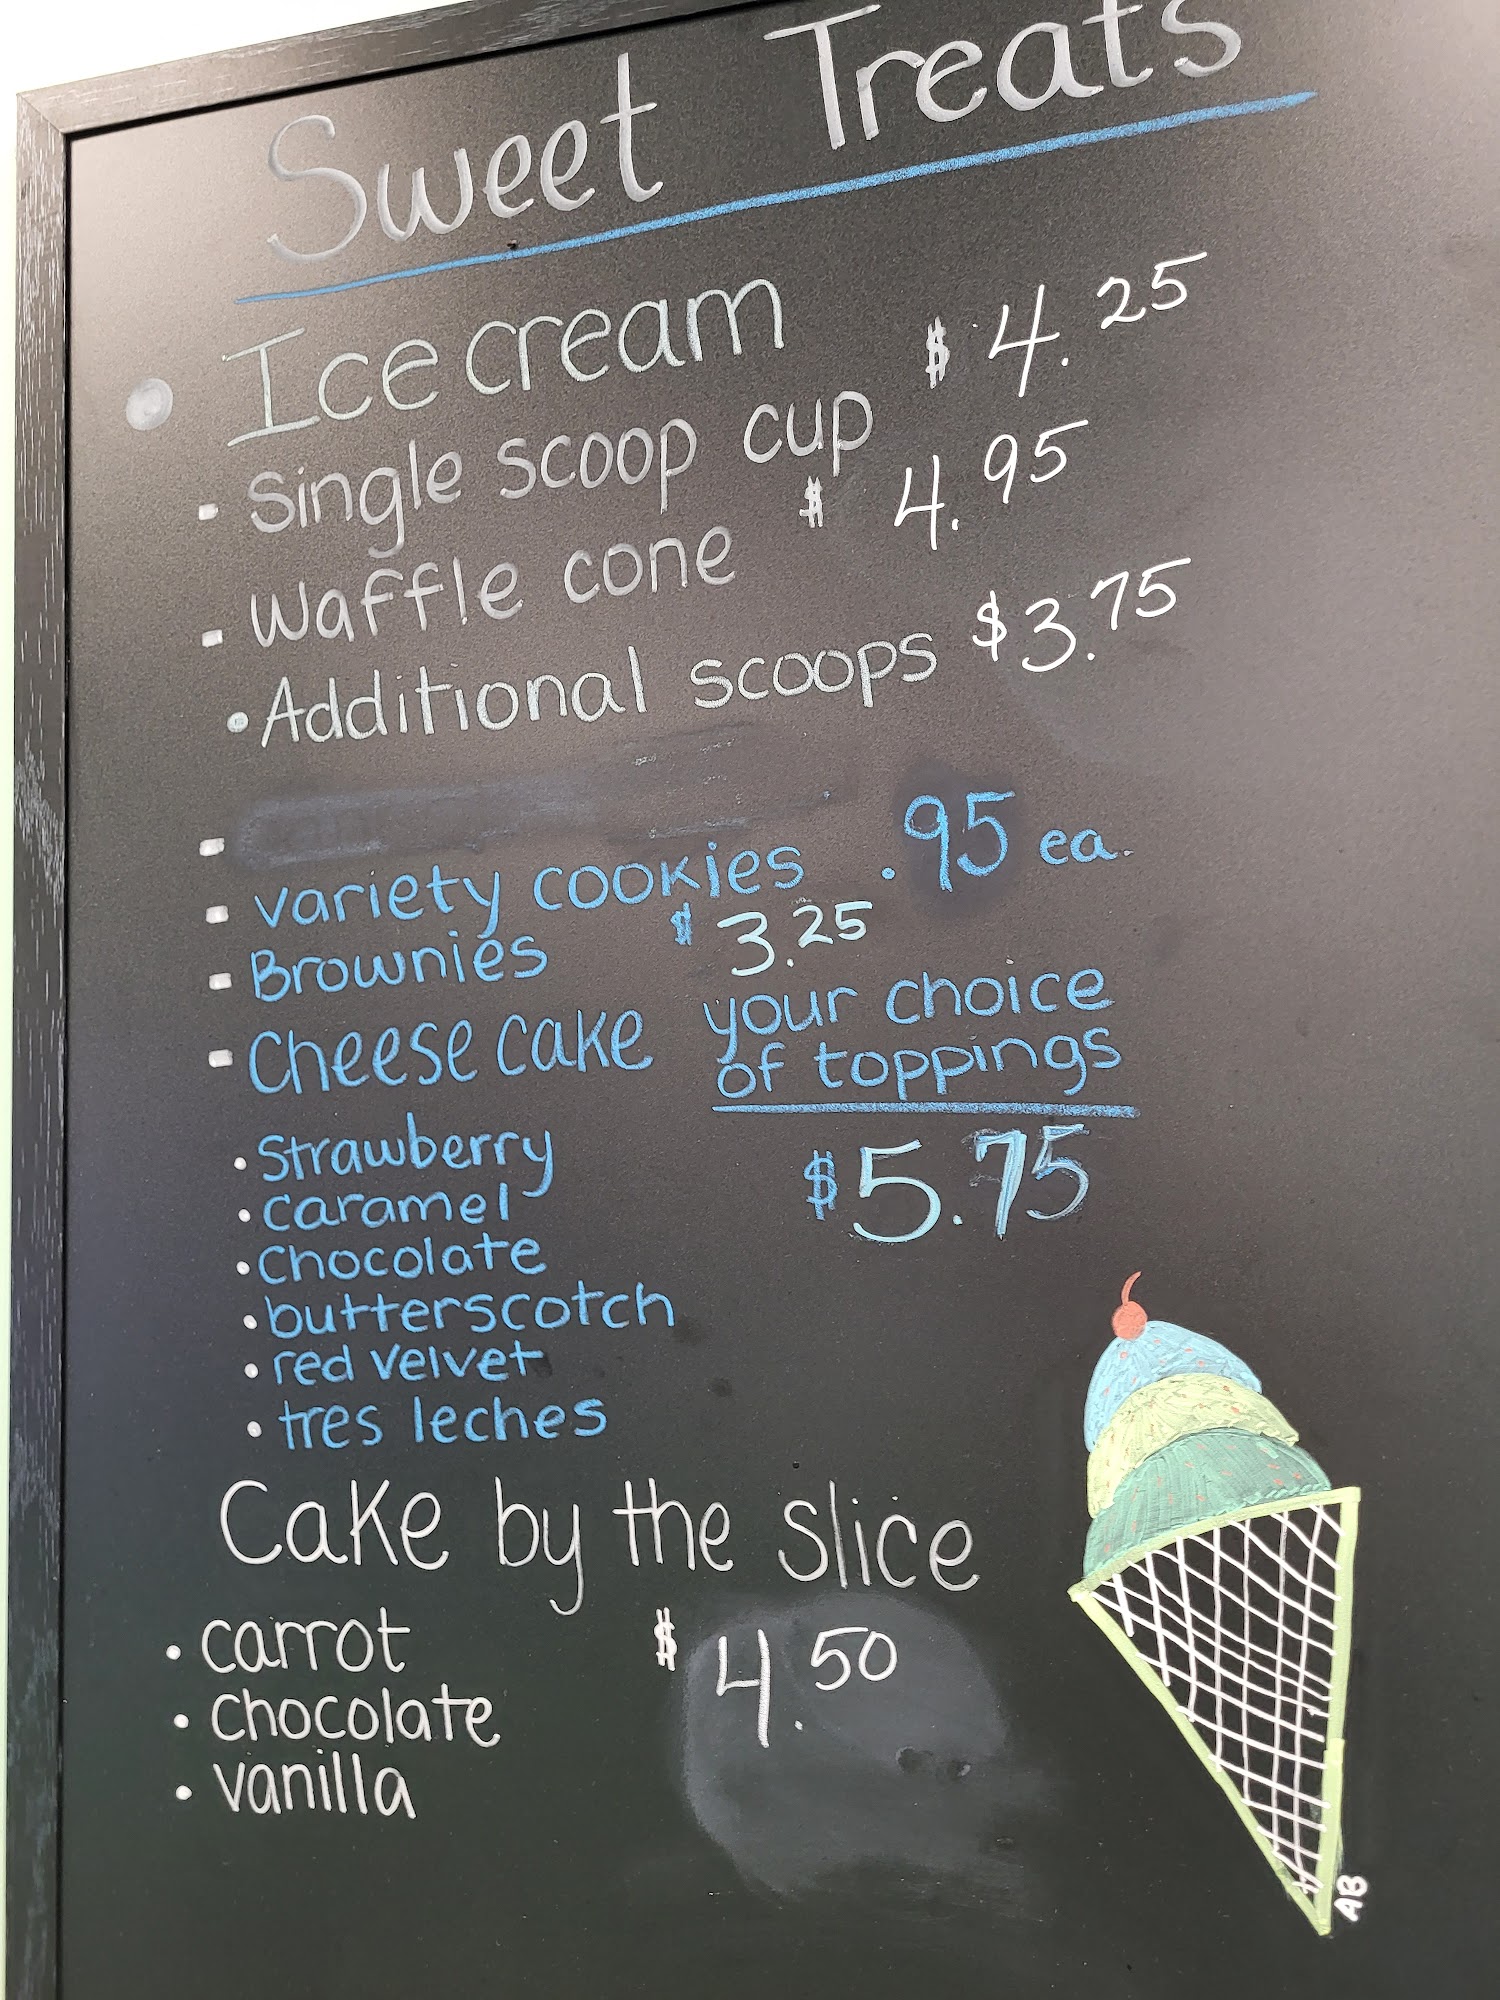 Sweet Treats
Ice cream
Single scoop cup $4.25
Waffle cone $4.95
Additional scoops $3.75
variety cookies .95 ea.
Brownies $3.25
Cheese cake your choice
of toppings
$5.75
Strawberry
caramel
chocolate
butterscotch
red velvet
tres leches
Cake by the slice
carrot $4.50
chocolate
vanilla
AB